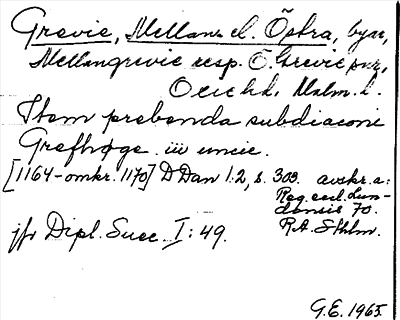 Grevie, Mellan el. Östra, byar,
Mellangrevie resp. Ö. Grevie snr,
Oxie hd, Malm. l.
Item prebenda subdiaconi
Grefhøge iii uncie.
[1164-omkr. 1170] D Dan 1:2, s. 303. avskr. a:
Reg. eccl. Lun-
densis 70.
R.A. Sthlm.
jfr Dipl. Suec. I: 49.
G.E. 1965